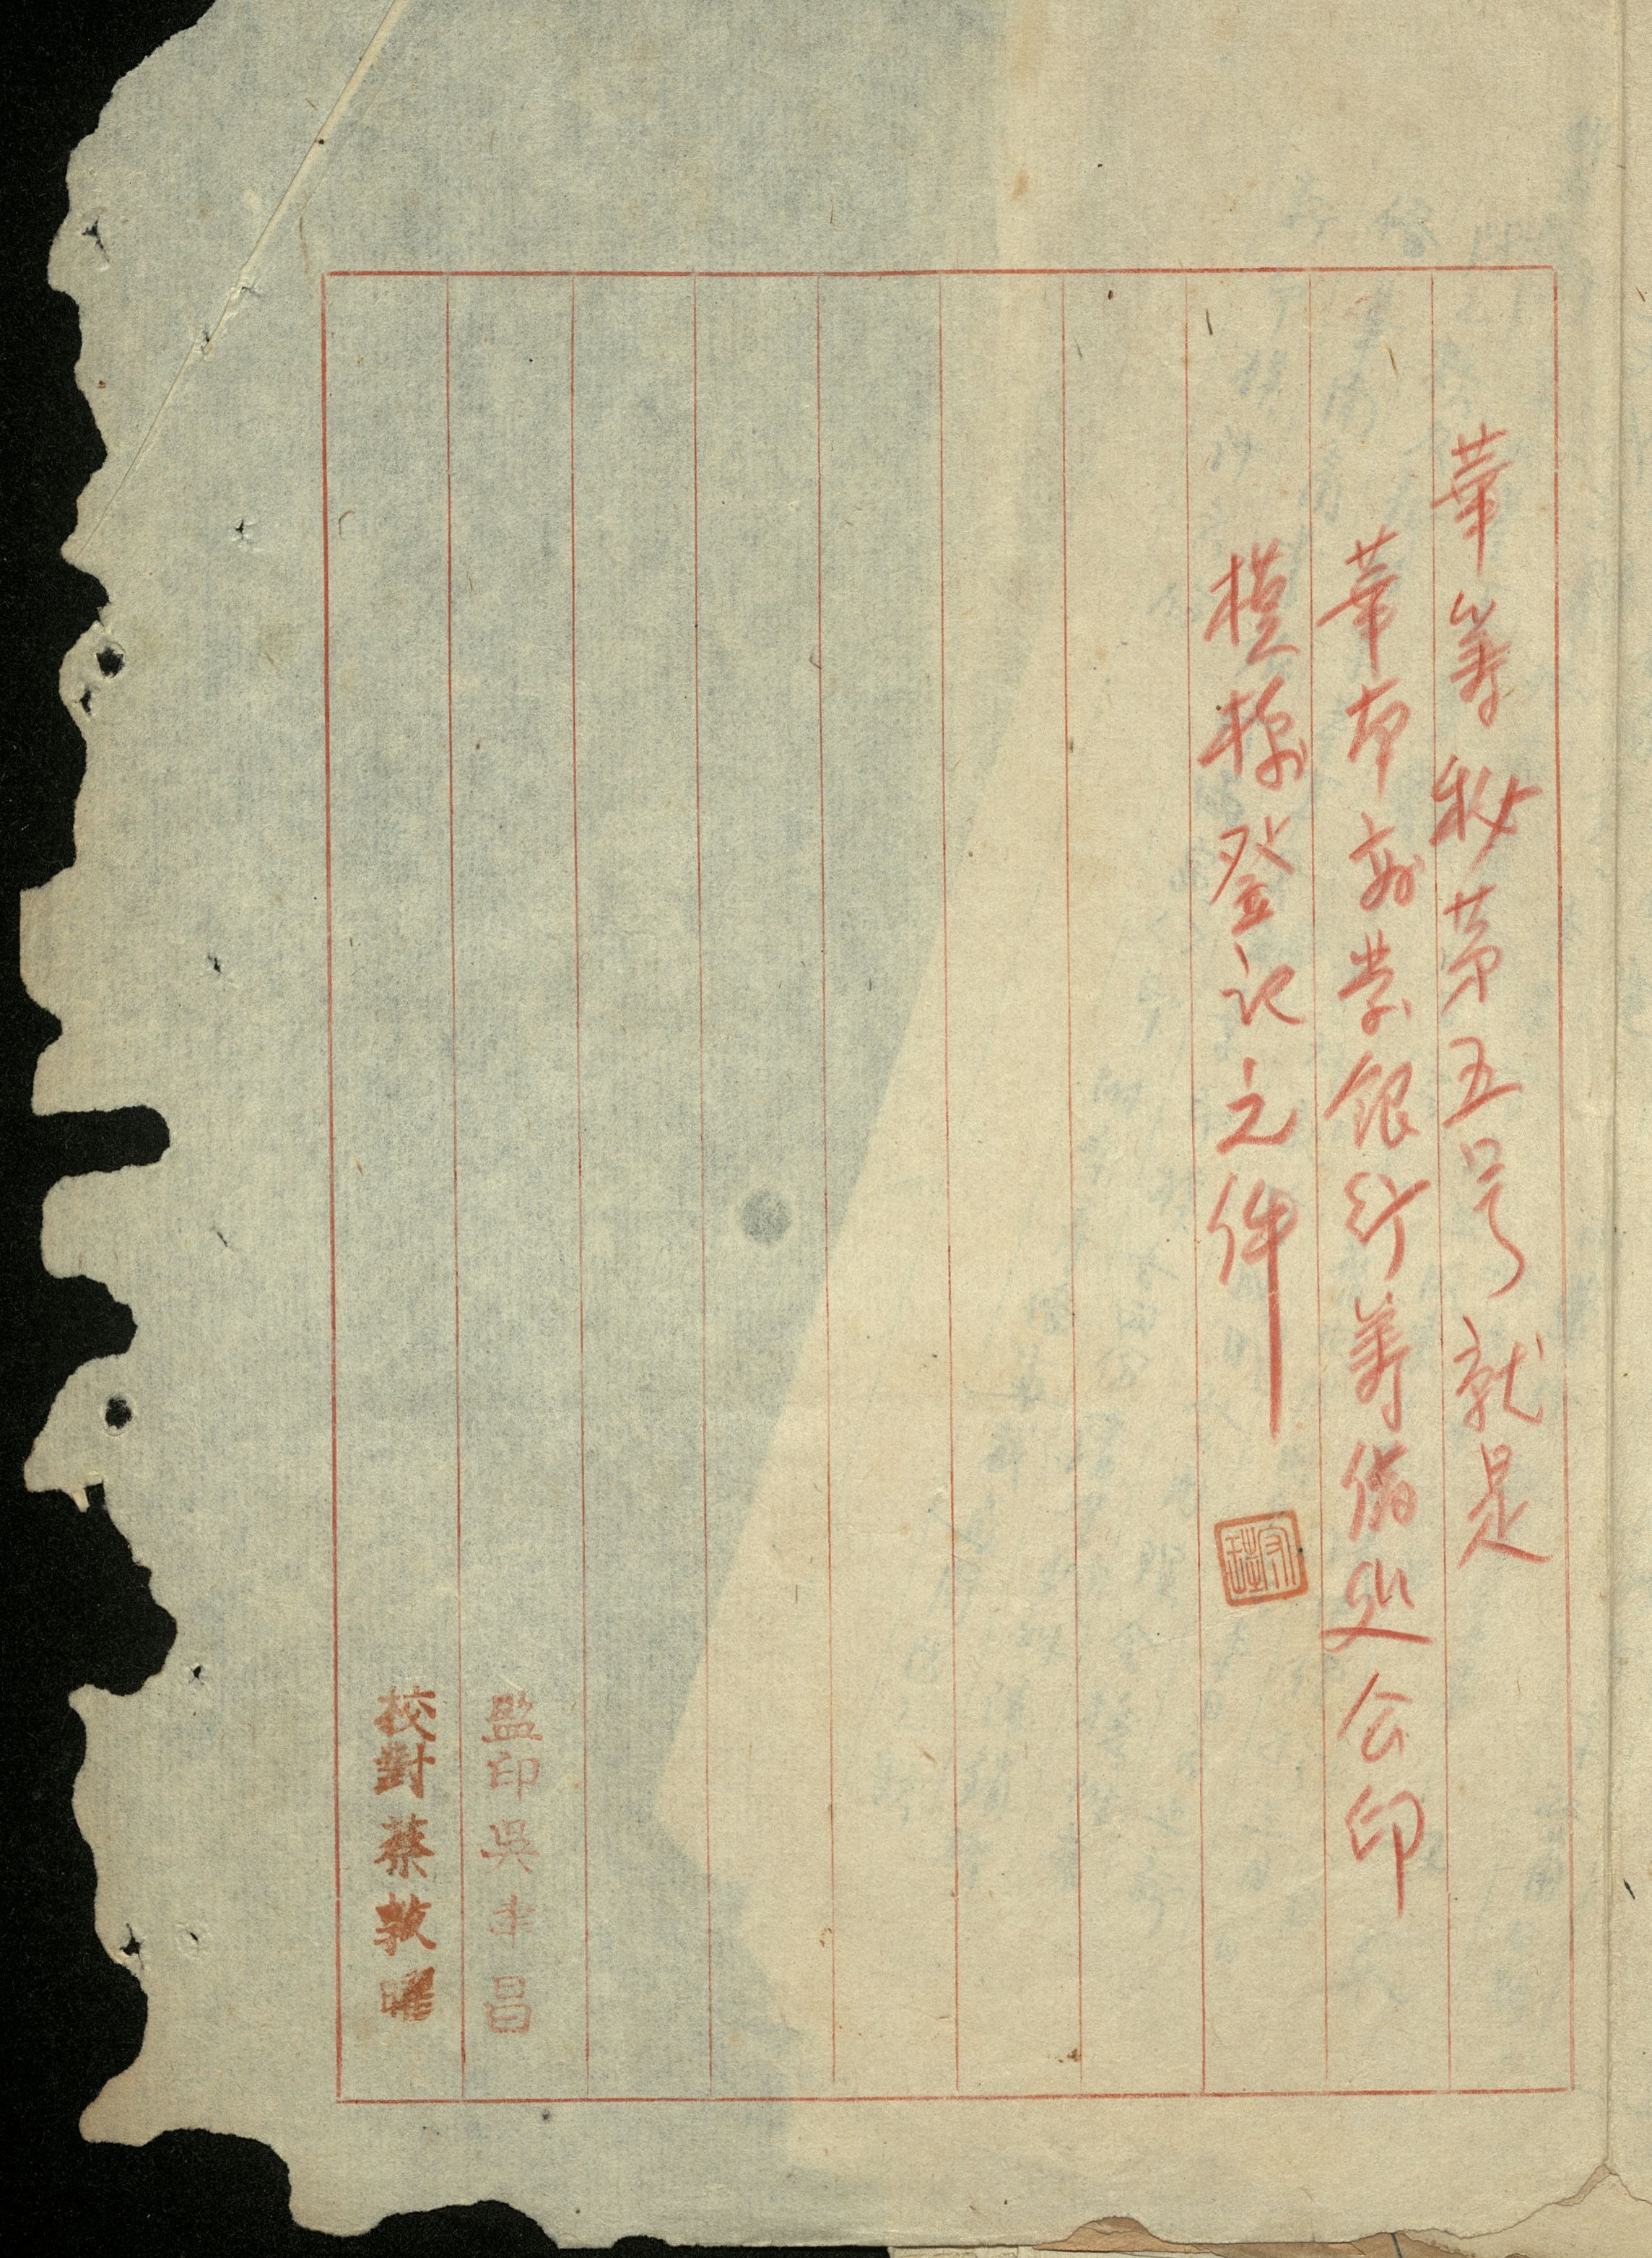 華籌秘第五号就是
華南商業銀行籌備処公印
模樣登記之件
監印吳 昌
校對蔡敦曜